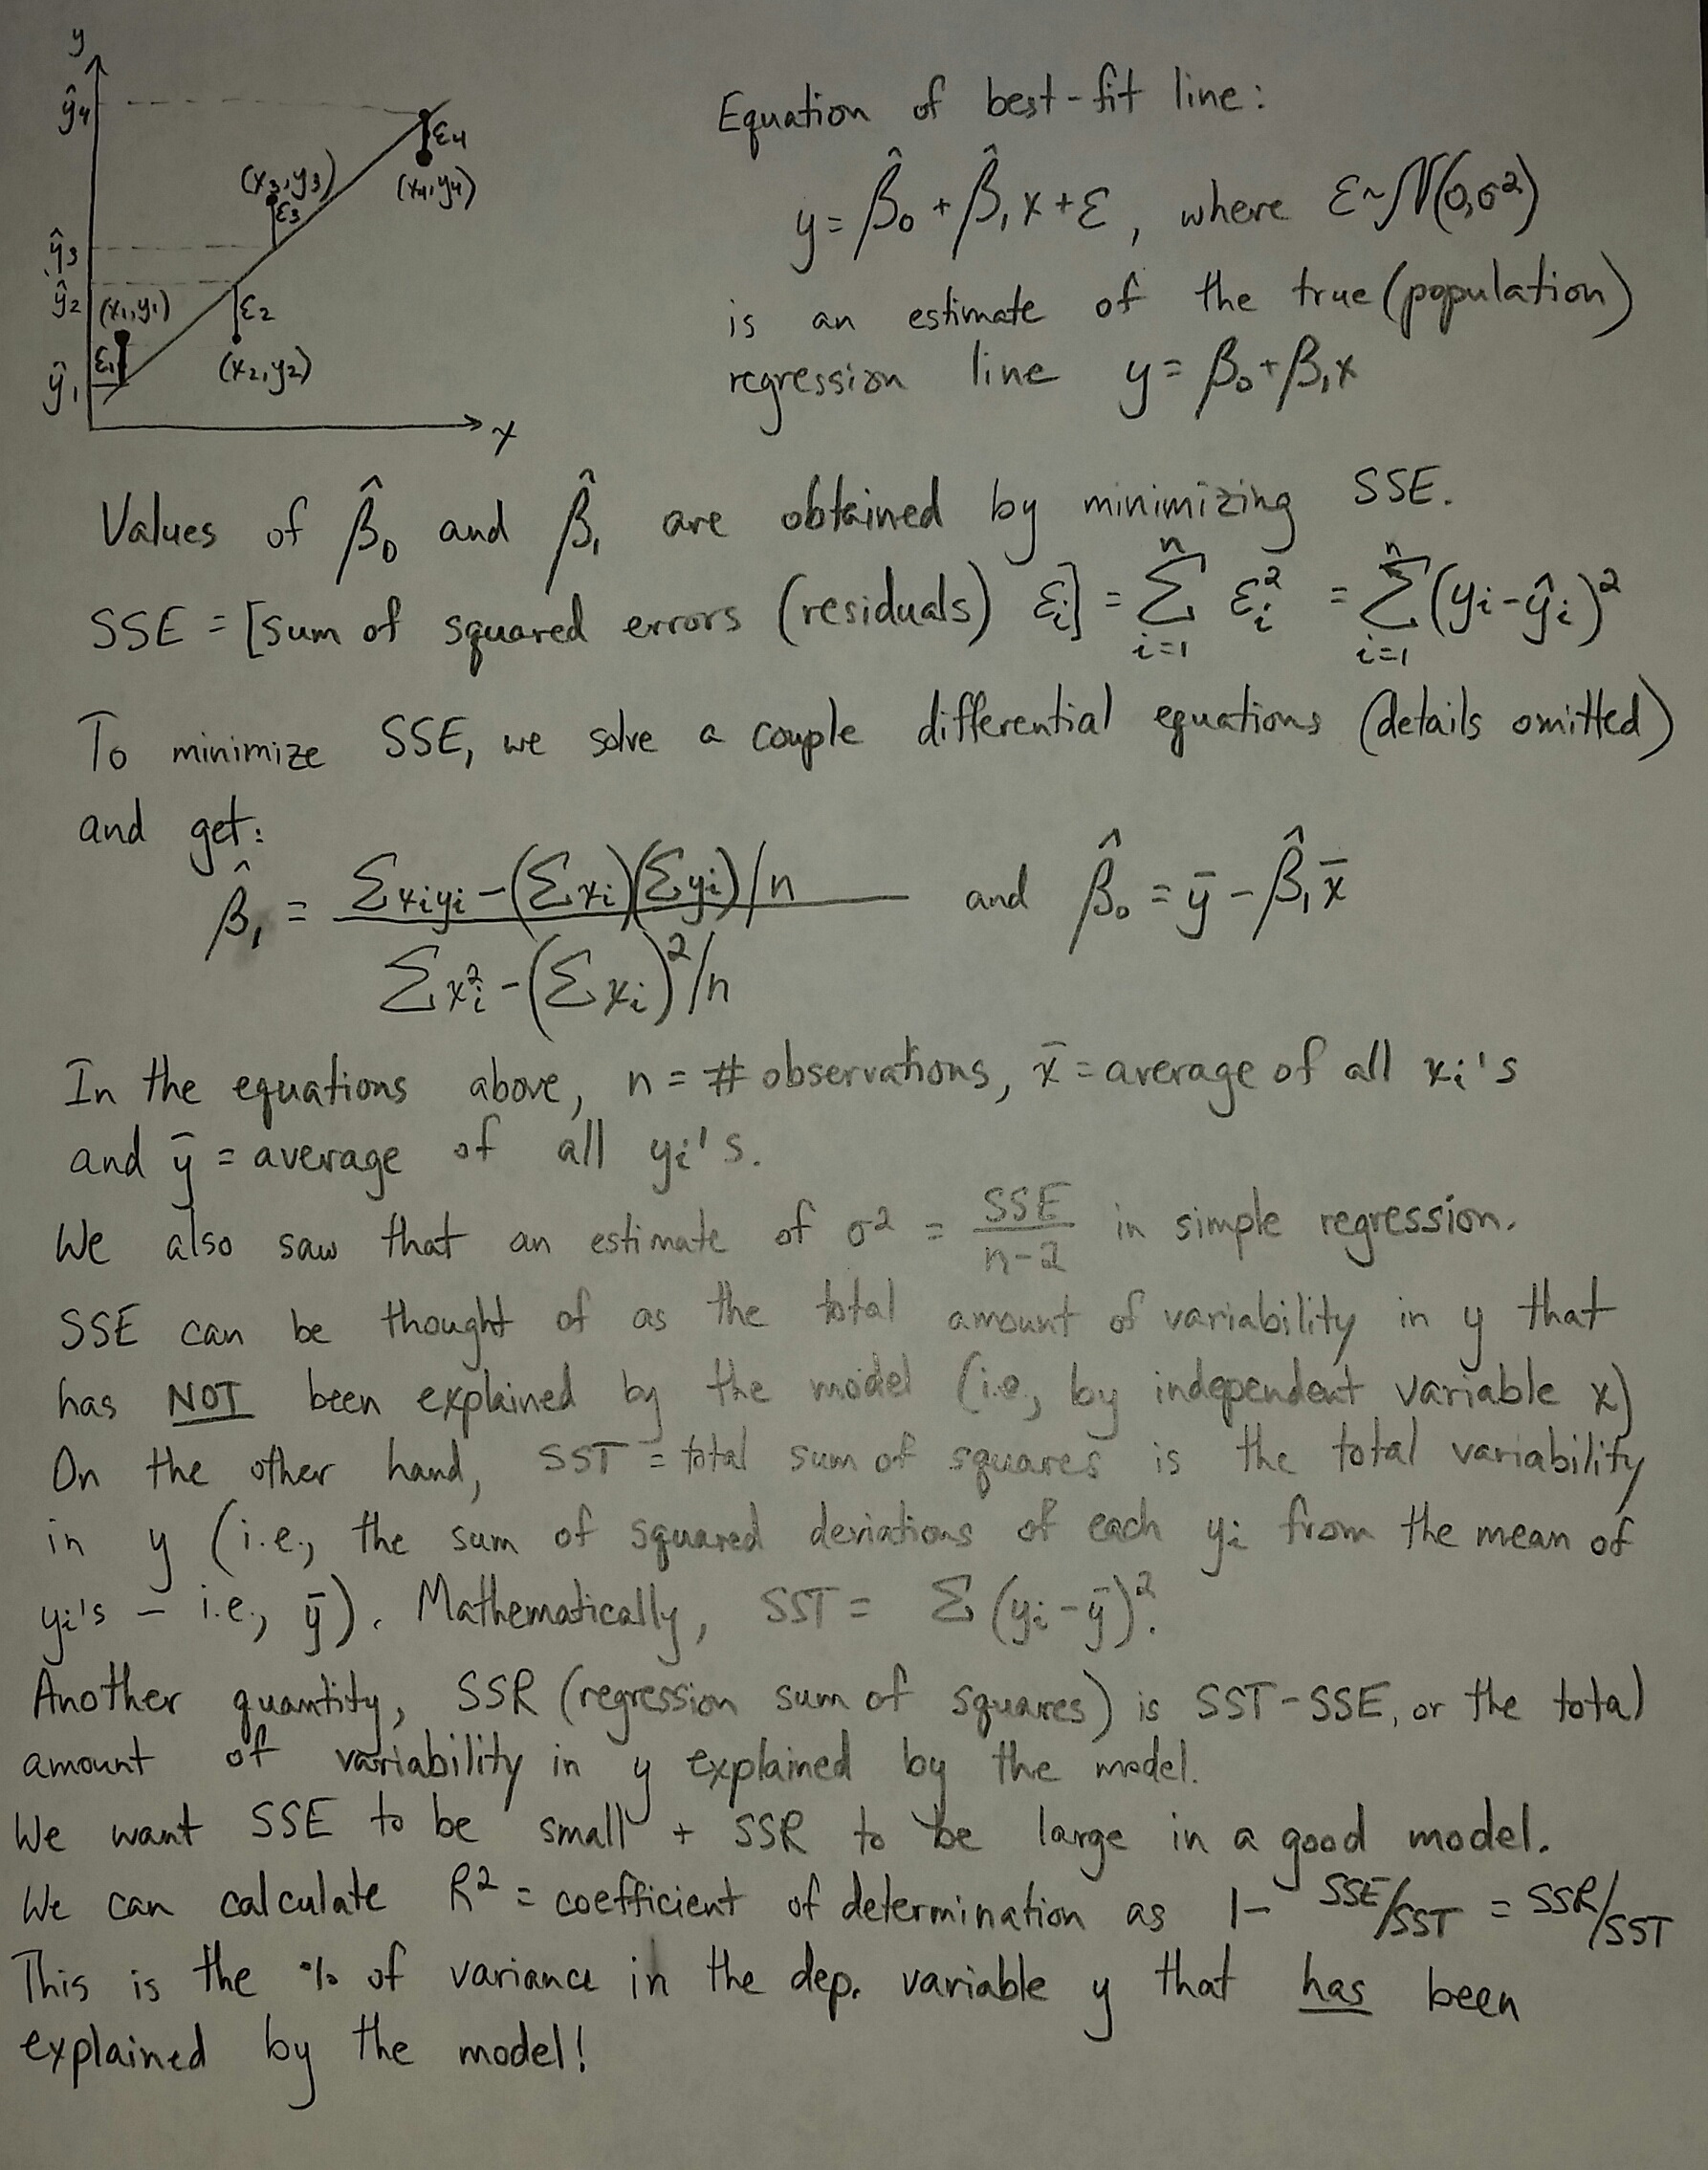 y
ŷ4
ε4
(x3,y3)
(x4,y4)
ε3
ŷ3
ŷ2
(x1,y1)
ε2
ε1
(x2,y2)
ŷ1
x
Equation of best-fit line:
y = β̂0 + β̂1 x + ε, where ε~N(0,σ²)
is an estimate of the true (population)
regression line y = β0 + β1x
Values of β̂0 and β̂1 are obtained by minimizing SSE.
SSE = [sum of squared errors (residuals) εi] = Σ_{i=1}^{n} εi² = Σ_{i=1}^{n} (yi - ŷi)²
To minimize SSE, we solve a couple differential equations (details omitted)
and get:
β̂1 = (Σxiyi - (Σxi)(Σyi)/n) / (Σxi² - (Σxi)²/n) and β̂0 = ȳ - β̂1x̄
In the equations above, n = # observations, x̄ = average of all xi's
and ȳ = average of all yi's.
We also saw that an estimate of σ² = SSE/(n-2) in simple regression.
SSE can be thought of as the total amount of variability in y that
has NOT been explained by the model (i.e., by independent variable x)
On the other hand, SST = total sum of squares is the total variability
in y (i.e., the sum of squared deviations of each yi from the mean of
yi's - i.e., ȳ). Mathematically, SST = Σ(yi - ȳ)².
Another quantity, SSR (regression sum of squares) is SST-SSE, or the total
amount of variability in y explained by the model.
We want SSE to be small + SSR to be large in a good model.
We can calculate R² = coefficient of determination as 1- SSE/SST = SSR/SST
This is the % of variance in the dep. variable y that has been
explained by the model!